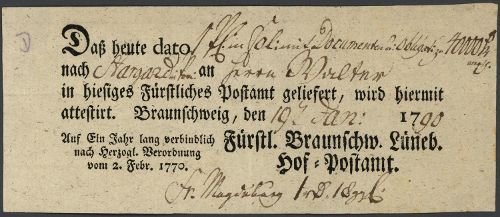 Daß heute dato
nach Stargard an Herrn Walter
in hiesiges Fürstliches Postamt geliefert, wird hiermit
attestirt. Braunschweig, den 19. Jan: 1790
Auf Ein Jahr lang verbindlich
nach Herzogl. Verordnung
vom 2. Febr. 1770.
Fürstl. Braunschw. Lüneb.
Hof-Postamt.
fr. Magdeburg